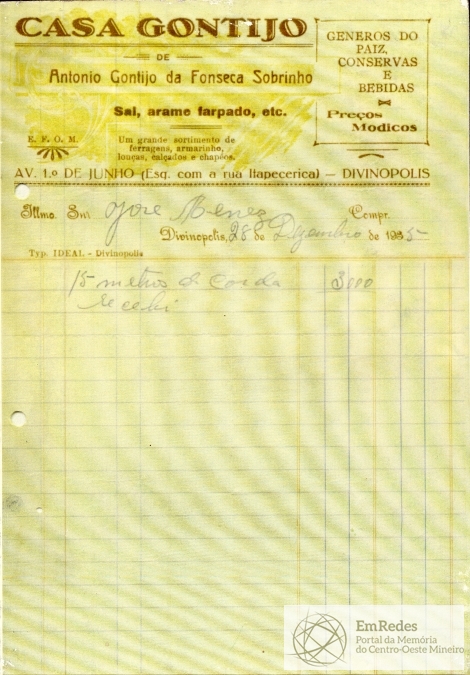 CASA GONTIJO
DE
Antonio Gontijo da Fonseca Sobrinho
Sal, arame farpado, etc.
E. F. O. M.
Um grande sortimento de
ferragens, armarinho,
louças, calçados e chapéos.
GENEROS DO
PAIZ,
CONSERVAS
E
BEBIDAS
Preços
Modicos
AV. 1.º DE JUNHO (Esq. com a rua Itapecerica) — DIVINOPOLIS
Illmo. Snr. José Compr.
Divinopolis, 28 de Dezembro de 1935
Typ. IDEAL - Divinopolis
15 metros de Corda 3000
Recebi
EmRedes
Portal da Memória
do Centro-Oeste Mineiro